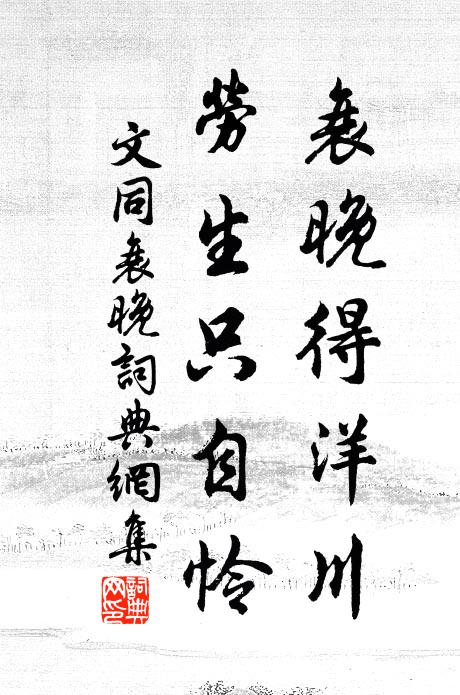 衰晚得洋川
勞生只自怜
文同衰晚詞典網集
詞典网印